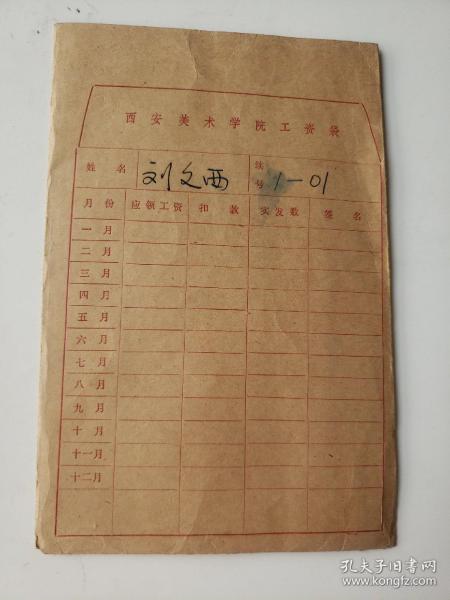 西安美术学院工资袋
姓名 刘文西 编号 1-01
月份 应领工资 扣款 实发数 签名
一月
二月
三月
四月
五月
六月
七月
八月
九月
十月
十一月
十二月
孔夫子旧书网
www.kongfz.com